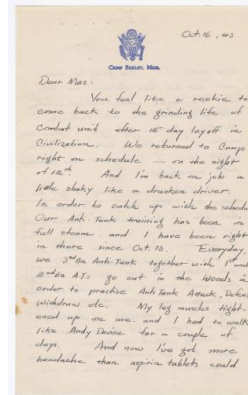 Oct. 16, 43
CAMP SHELBY, MISS.
Dear Mas:
You feel like a rookie to
come back to the grinding life of
Combat unit after 15 day layoff in
Civilization. We returned to Camp
right on schedule — on the night
of 12th. And I'm back on job a
little shaky like a drunken driver.
In order to catch up with the schedule
Our Anti-Tank training has been in
full steam and I have been right
in there since Oct. 13. Everyday,
we 3rd Bn Anti Tank together with 1st and
2nd Bn A.Ts go out in the woods in
order to practise Anti Tank Attack, Defense
Withdraw etc. My leg muscles tight-
ened up on me. and I had to walk
like Andy Devine for a couple of
days. And now I've got more
headache than aspirin tablets could